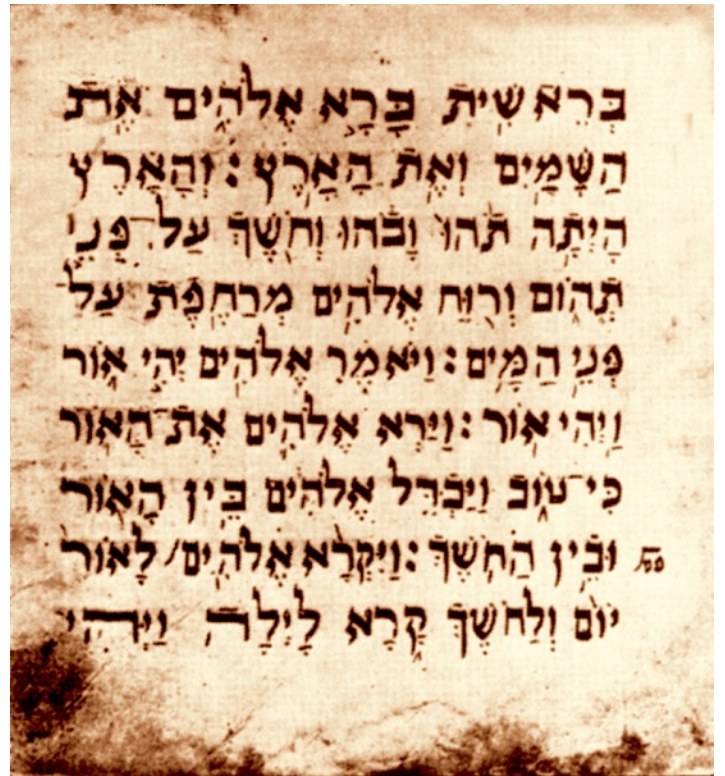 בְּרֵאשִׁית בָּרָא אֱלֹהִים אֵת
הַשָּׁמַיִם וְאֵת הָאָרֶץ׃ וְהָאָרֶץ
הָיְתָה תֹהוּ וָבֹהוּ וְחֹשֶׁךְ עַל־פְּנֵי
תְהוֹם וְרוּחַ אֱלֹהִים מְרַחֶפֶת עַל־
פְּנֵי הַמָּיִם׃ וַיֹּאמֶר אֱלֹהִים יְהִי אוֹר
וַיְהִי אוֹר׃ וַיַּרְא אֱלֹהִים אֶת־הָאוֹר
כִּי־טוֹב וַיַּבְדֵּל אֱלֹהִים בֵּין הָאוֹר
וּבֵין הַחֹשֶׁךְ׃ וַיִּקְרָא אֱלֹהִים׀ לָאוֹר
יוֹם וְלַחֹשֶׁךְ קָרָא לָיְלָה וַיְהִי